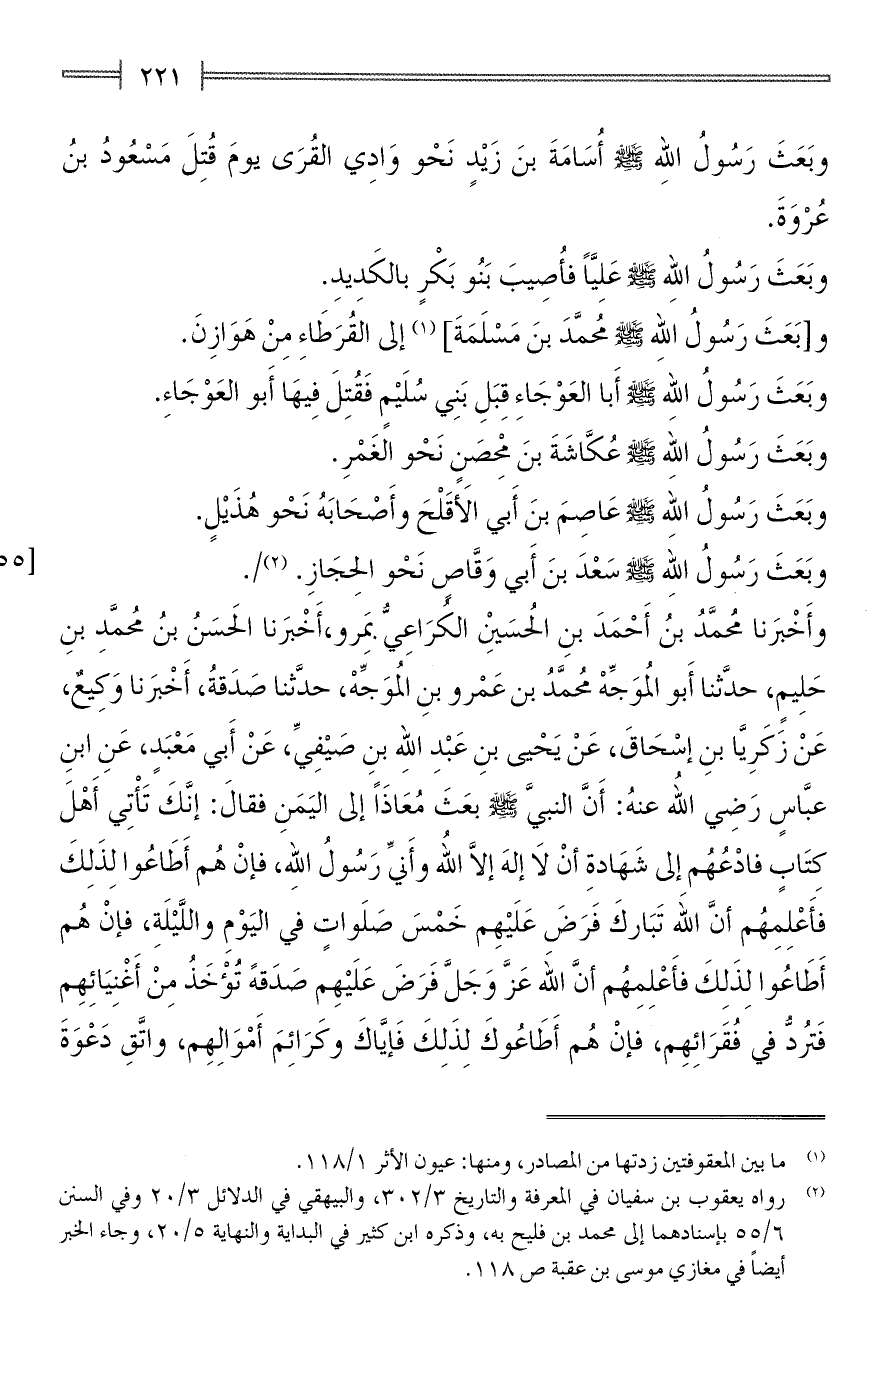 ٢٢١
وبَعَثَ رَسُولُ اللهِ ﷺ أُسَامَةَ بنَ زَيْدٍ نَحْو وَادِي القُرَى يومَ قُتِلَ مَسْعُودُ بنُ
عُرْوَةَ.
وبَعَثَ رَسُولُ اللهِ ﷺ عَلِيَّاً فأُصِيبَ بَنُو بَكْرٍ بالكَدِيدِ.
و[بَعَثَ رَسُولُ اللهِ ﷺ مُحمَّدَ بنَ مَسْلَمَةَ] (١) إلى القُرَطَاءِ مِنْ هَوَازِنَ.
وبَعَثَ رَسُولُ اللهِ ﷺ أَبا العَوْجَاءِ قِبَلِ بَنِي سُلَيْمٍ فَقُتِلَ فِيهَا أَبو العَوْجَاءِ.
وبَعَثَ رَسُولُ اللهِ ﷺ عُكَّاشَةَ بنَ مِحْصَنٍ نَحْو الغَمْرِ.
وبَعَثَ رَسُولُ اللهِ ﷺ عَاصِمَ بنَ أَبي الأَقْلَحَ وأَصْحَابَهُ نَحْو هُذَيْلٍ.
وبَعَثَ رَسُولُ اللهِ ﷺ سَعْدَ بنَ أَبي وَقَّاصٍ نَحْو الحِجَازِ. (٢)/.
وأَخْبَرَنا مُحمَّدُ بنُ أَحْمَدَ بنِ الحُسَيْنْ الكُرَاعِيُّ بمَرو، أَخْبَرَنا الحَسَنُ بنُ مُحمَّدِ بنِ
حَلِيمٍ، حدَّثنا أَبو المُوَجِّهْ مُحمَّدُ بن عَمْرو بنِ المُوَجِّهْ، حدَّثنا صَدَقةُ، أَخْبَرَنا وَكِيعٌ،
عَنْ زَكَرِيَّا بنِ إسْحَاقَ، عَنْ يَحْيى بنِ عَبْدِ اللهِ بن صَيْفِيٍّ، عَنْ أَبي مَعْبَدٍ، عَنِ ابنِ
عبَّاسٍ رَضِي اللهُ عنهُ: أَنَّ النبيَّ ﷺ بعَثَ مُعَاذَاً إلى اليَمَنِ فقالَ: إنَّكَ تَأْتِي أَهْلَ
كِتَابٍ فادْعُهُم إلى شَهَادةِ أنْ لَا إلهَ إلاَّ اللهُ وأَنيِّ رَسُولُ اللهِ، فإنْ هُم أَطَاعُوا لِذَلِكَ
فأَعْلِمِهُم أنَّ اللهَ تَبَاركَ فَرَضَ عَلَيْهِم خَمْسَ صَلَواتٍ في اليَوْمِ واللَّيْلَةِ، فإنْ هُم
أَطَاعُوا لذَلكَ فأَعْلِمهُم أنَّ اللهَ عَزَّ وَجَلَّ فَرَضَ عَلَيْهِم صَدَقةً تُؤْخَذُ مِنْ أَغْنِيَائِهِم
فَتُرَدُّ في فُقَرَائِهِم، فإنْ هُم أَطَاعُوكَ لِذَلِكَ فَإيَّاكَ وكَرَائِمَ أَمْوَالِهِم، واتَّقِ دَعْوَةَ
(١) ما بين المعقوفتين زدتها من المصادر، ومنها: عيون الأثر ١١٨/١.
(٢) رواه يعقوب بن سفيان في المعرفة والتاريخ ٣٠٢/٣، والبيهقي في الدلائل ٢٠/٣ وفي السنن
٥٥/٦ بإسنادهما إلى محمد بن فليح به، وذكره ابن كثير في البداية والنهاية ٢٠/٥، وجاء الخبر
أيضاً في مغازي موسى بن عقبة ص ١١٨.